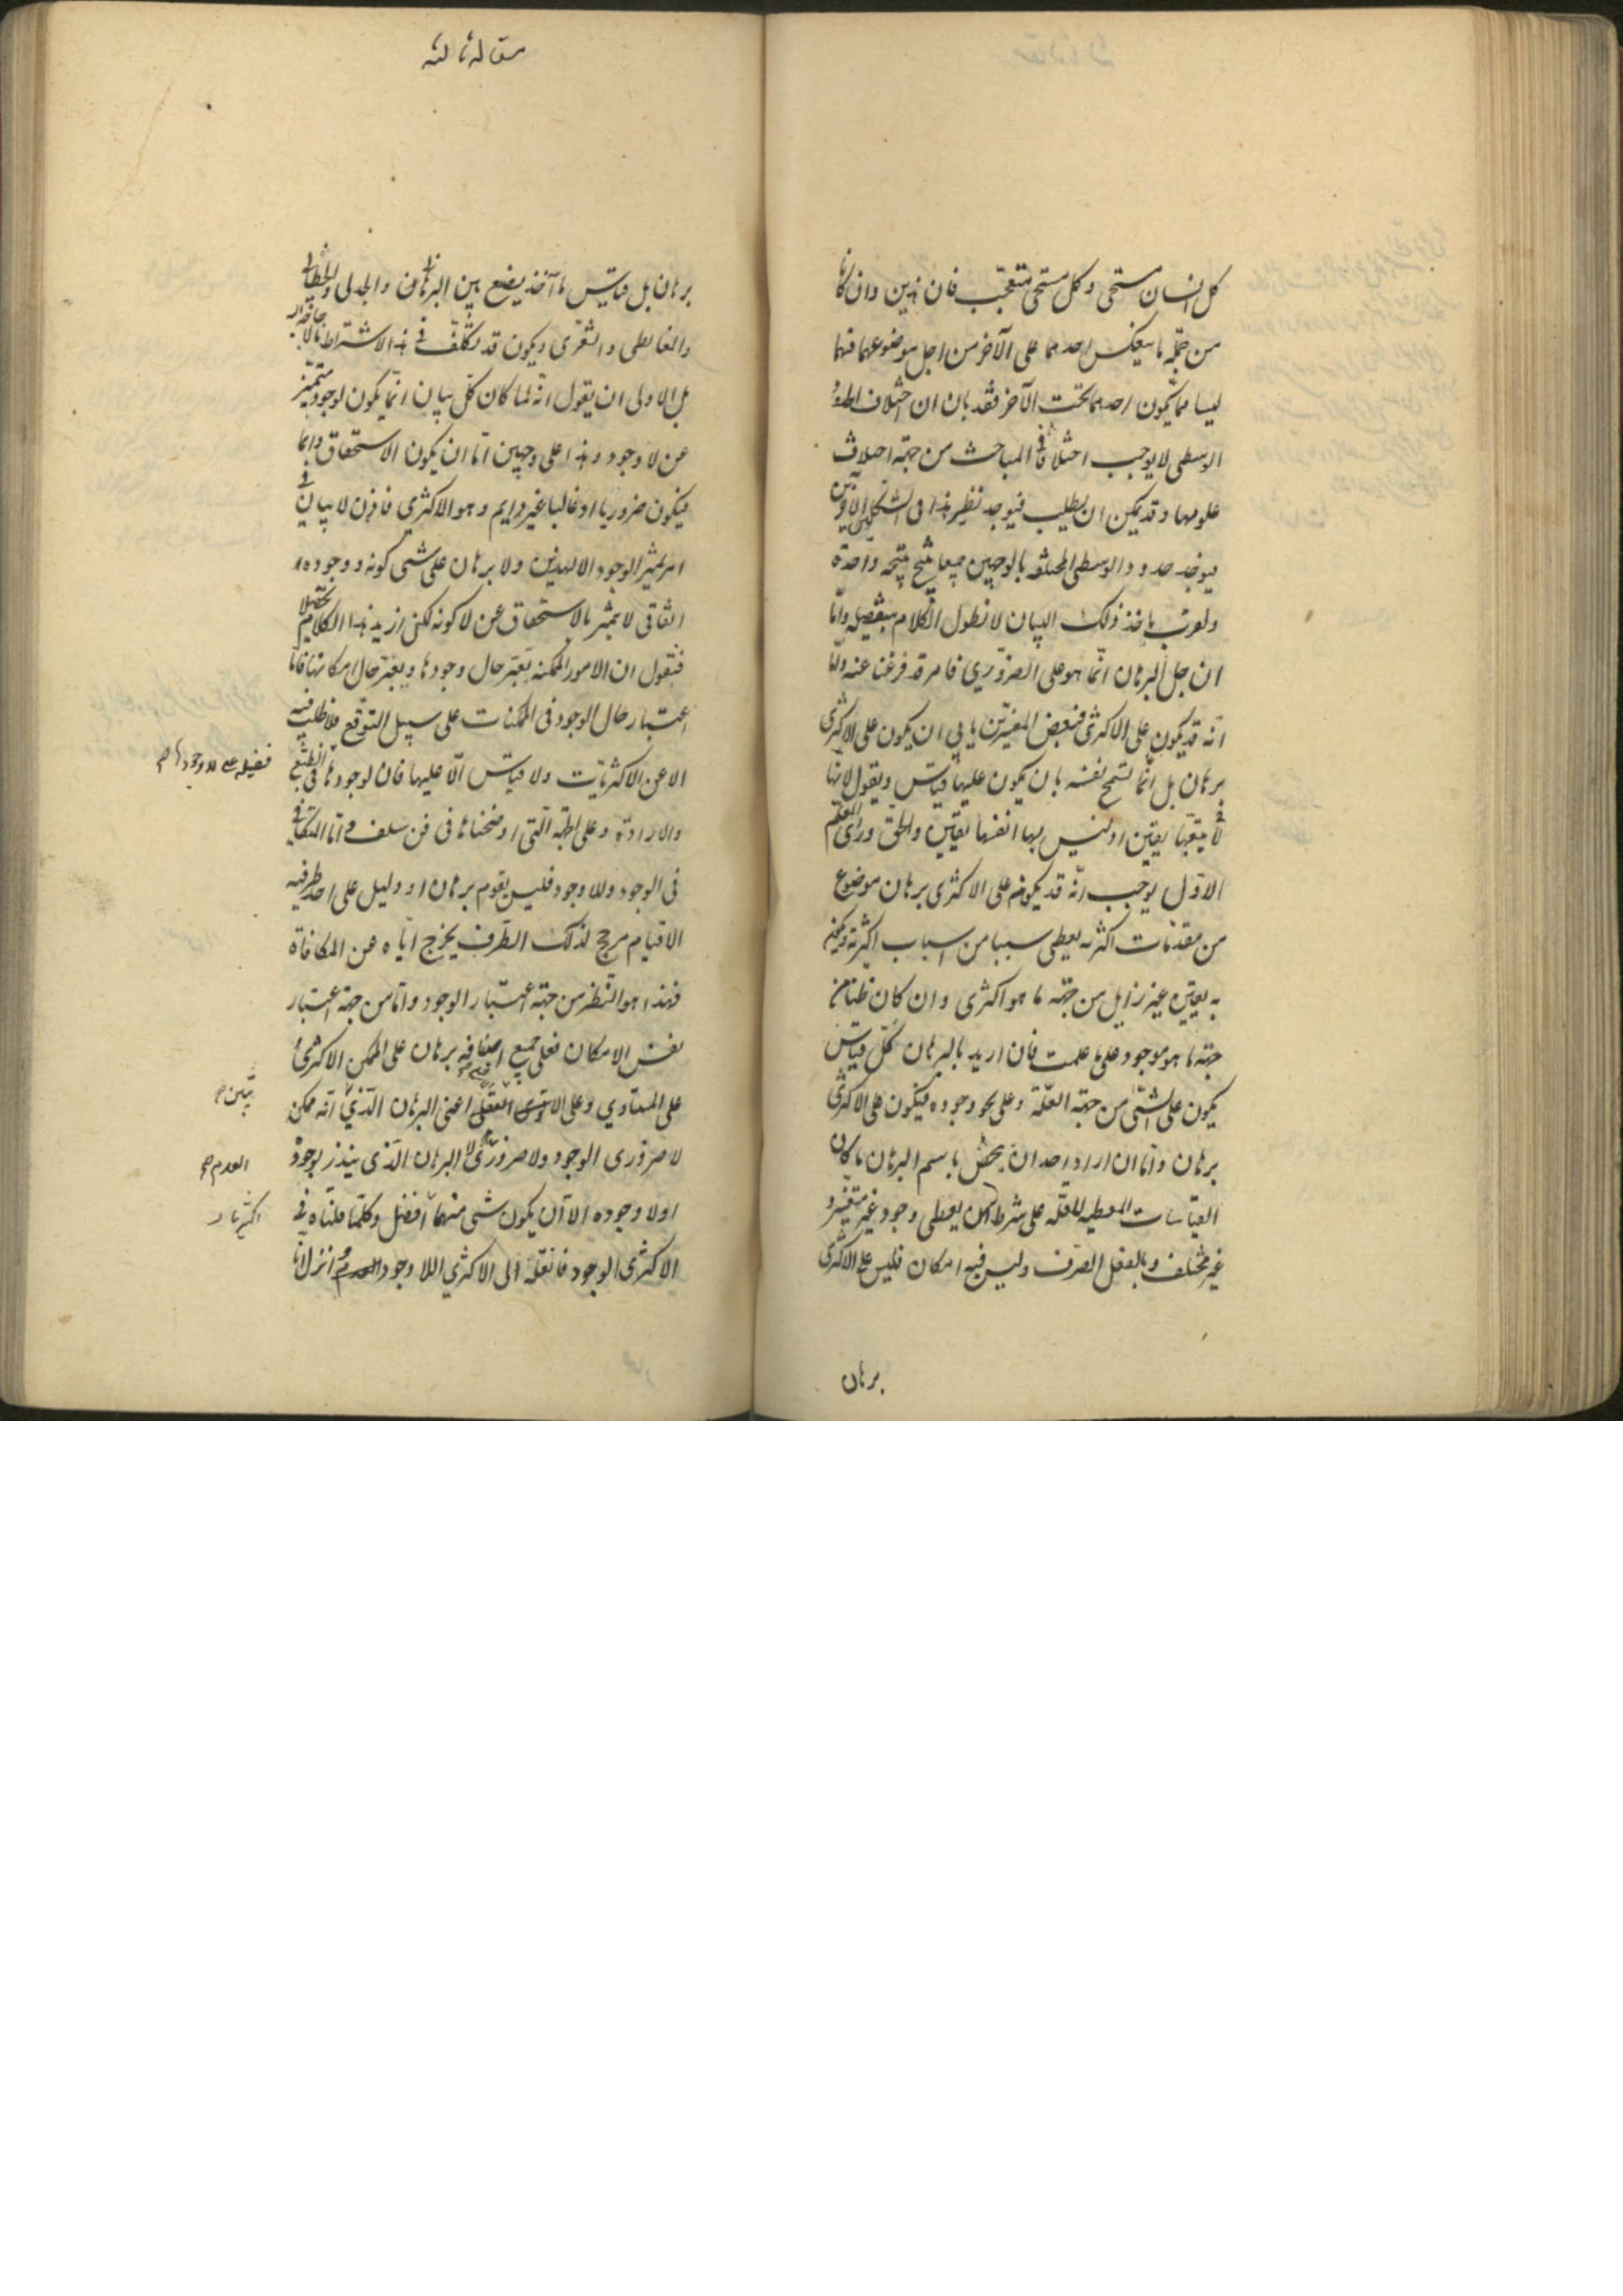 كل انسان مستحى وكل مستحى متعجب فان هذين وان كانا
من جملة ما ينعكس احدهما على الآخر من اجل موضوعهما فهما
ليسا مما يكون احدهما تحت الآخر فقد بان ان اختلاف الحدود
الوسطى لا يوجب اختلافا فى المباحث من جهة اختلاف
علومها وقد يمكن ان يطلب فيوجد نظير هذا فى الشكلين الآخرين
فيوجد حدود الوسطى المختلفة بالوجهين جميعا ينتج نتيجة واحدة
ولقرب ماخذ ذلك البيان لا نطول الكلام بتفصيله واما
ان جل البرهان انما هو على الضرورى فامر قد فرغنا عنه واما
انه قد يكون على الاكثرى فبعض المفسرين يابى ان يكون على الاكثرى
برهان بل انما تسمح نفسه بان يكون عليها قياس ويقول لانها
لا يتبعها يقين اذ ليس بها انفسها يقين والحق ورأى المعلم
الاول يوجب انه قد يكون على الاكثرى برهان موضوع
من مقدمات اكثرية يعطى سببا من اسباب اكثرية
به يقين غير زايل من جهة ما هو اكثرى وان كان ظنا من
جهة ما هو موجود على ما علمت فان اريد بالبرهان كل قياس
يكون على الشئ من جهة العلة وعلى نحو وجوده فيكون على الاكثرى
برهان واما ان اراد احد ان يخص باسم البرهان ما كان
القياسات المعطية للعلة على شرط ان يعطى وجود غير متغير و
غير مختلف وبالفعل الصرف وليس فيه امكان فليس على الاكثرى
برهان
مقاله ثالثه
برهان بل قياس ما آخذ يضع بين البرهانى والجدلى والخطابى
والمغالطى والشعرى ويكون قد تكلف فى هذا الاشتراط ما لا حاجة اليه
بل الاولى ان يقول انه لما كان كل بيان انما يكون لوجود متميز
عن لا وجود وهذا على وجهين اما ان يكون الاستحقاق دايما
فيكون ضروريا او غالبا غير دايم وهو الاكثرى فاذن لا بيان فى
امر متميز الوجود الا لهذين ولا برهان على شئ كونه ووجوده
اتفاقى لا يتميز بالاستحقاق عن لا كونه لكن ازيد هذا الكلام تحصيلا
فنقول ان الامور الممكنة يعتبر حال وجودها ويعتبر حال امكانها فاما
اعتبار حال الوجود فى الممكنات على سبيل التوقع فلا طلب فيه
الا عن الاكثريات ولا قياس الا عليها فان لوجودها فى الطبع
فضيلة على لا وجودها صح
والارادة وعلى الجهة التى اوضحناها فى فن سلف واما المتكافى
فى الوجود واللا وجود فليس يقوم برهان او دليل على احد طرفيه
الا قيام مرجح لذلك الطرف يخرج اياه عن المكافاة
فهذا هو النظر من جهة اعتبار الوجود واما من جهة اعتبار
نفس الامكان فعلى جميع اصنافه برهان على الممكن الاكثرى و
على المتساوى وعلى الاقلى اعنى البرهان الذى انه ممكن
يتبين صح
لا ضرورى الوجود ولا ضرورى لا البرهان الذى ينذر بوجوده
العدم صح
او لا وجوده الا ان يكون شئ منهما افضل وكلما قلناه فى
الاكثرى الوجود فانقله الى الاكثرى اللا وجود